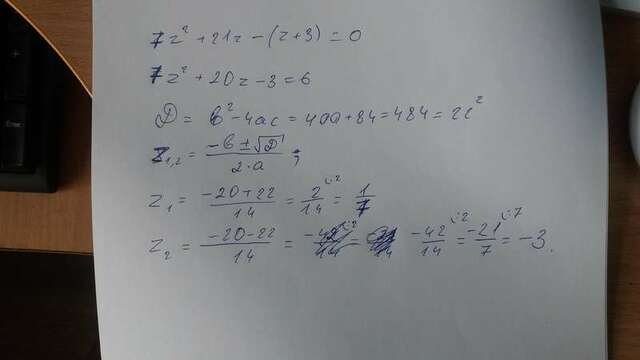 7z² + 21z - (z+3) = 0
7z² + 20z - 3 = 6
D = b² - 4ac = 400 + 84 = 484 = 22²
z₁,₂ = (-b ± √D) / (2·a) ;
z₁ = (-20+22) / 14 = 2/14 (:2 = 1/7
z₂ = (-20-22) / 14 = -42/14 (:2 = -21/7 (:7 = -3.